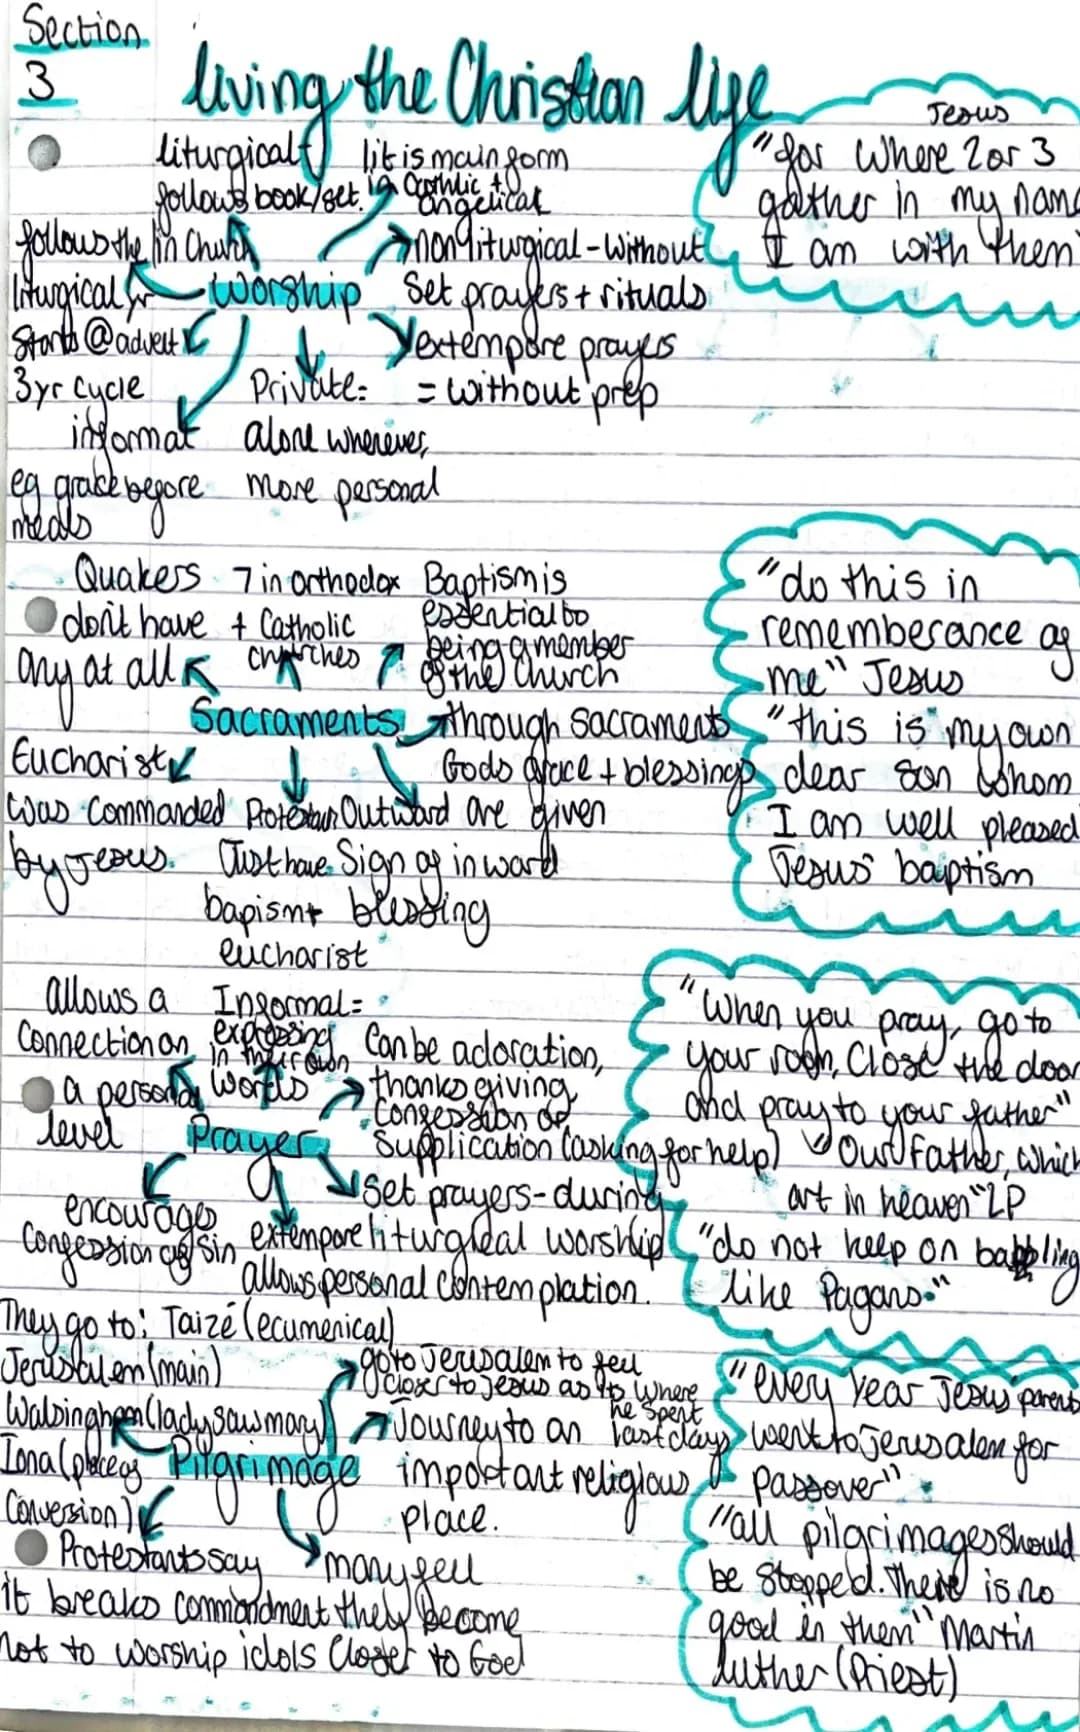 Section
3
living the Christian life
liturgical
follows book/set.
lit is main form
in Catholic +
angelical
in Church
nonliturgical - without
set prayers + rituals
follows the
liturgical yr
starts @ advent
3yr cycle
Worship
extempore prayers
= without prep
Private =
alone wherever,
more personal
informal
eg grace before
meals
Jesus
"for where 2 or 3
gather in my name
I am with them"
Quakers
don't have
any at all
7 in orthodox
+ Catholic
churches
Baptism is
essential to
being a member
of the Church
Sacraments
through sacraments
Gods grace + blessings
are given
Eucharist
was commanded
by Jesus.
Protestants
Just have
bapism +
eucharist
Outward
Sign of inward
blessing
"do this in
rememberance of
me" Jesus
"this is my own
dear son whom
I am well pleased
Jesus' baptism
allows a
connection on
a personal
level
Informal =
expressing
in their own
words
Can be adoration,
thanksgiving,
confession or
supplication (asking for help)
Prayer
Set prayers - during
liturgical worship
encourages
confession of sin
extempore
allows personal contemplation.
"When you pray, go to
your room, close the door
and pray to your father"
"Our Father, which
art in heaven" LP
"do not keep on babbling
like Pagans."
They go to: Taizé (ecumenical)
Jerusalem (main)
Walsingham (lady saw mary)
Iona (place of
conversion)
Pilgrimage
go to Jerusalem to feel
closer to Jesus as its where
he spent
last days
Journey to an
important religious
place.
Protestants say
it breaks commandment
not to worship idols
many feel
they become
closer to God
"every year Jesus' parents
went to Jerusalem for
passover"
"all pilgrimages should
be stopped. There is no
good in them" Martin
Luther (Priest)